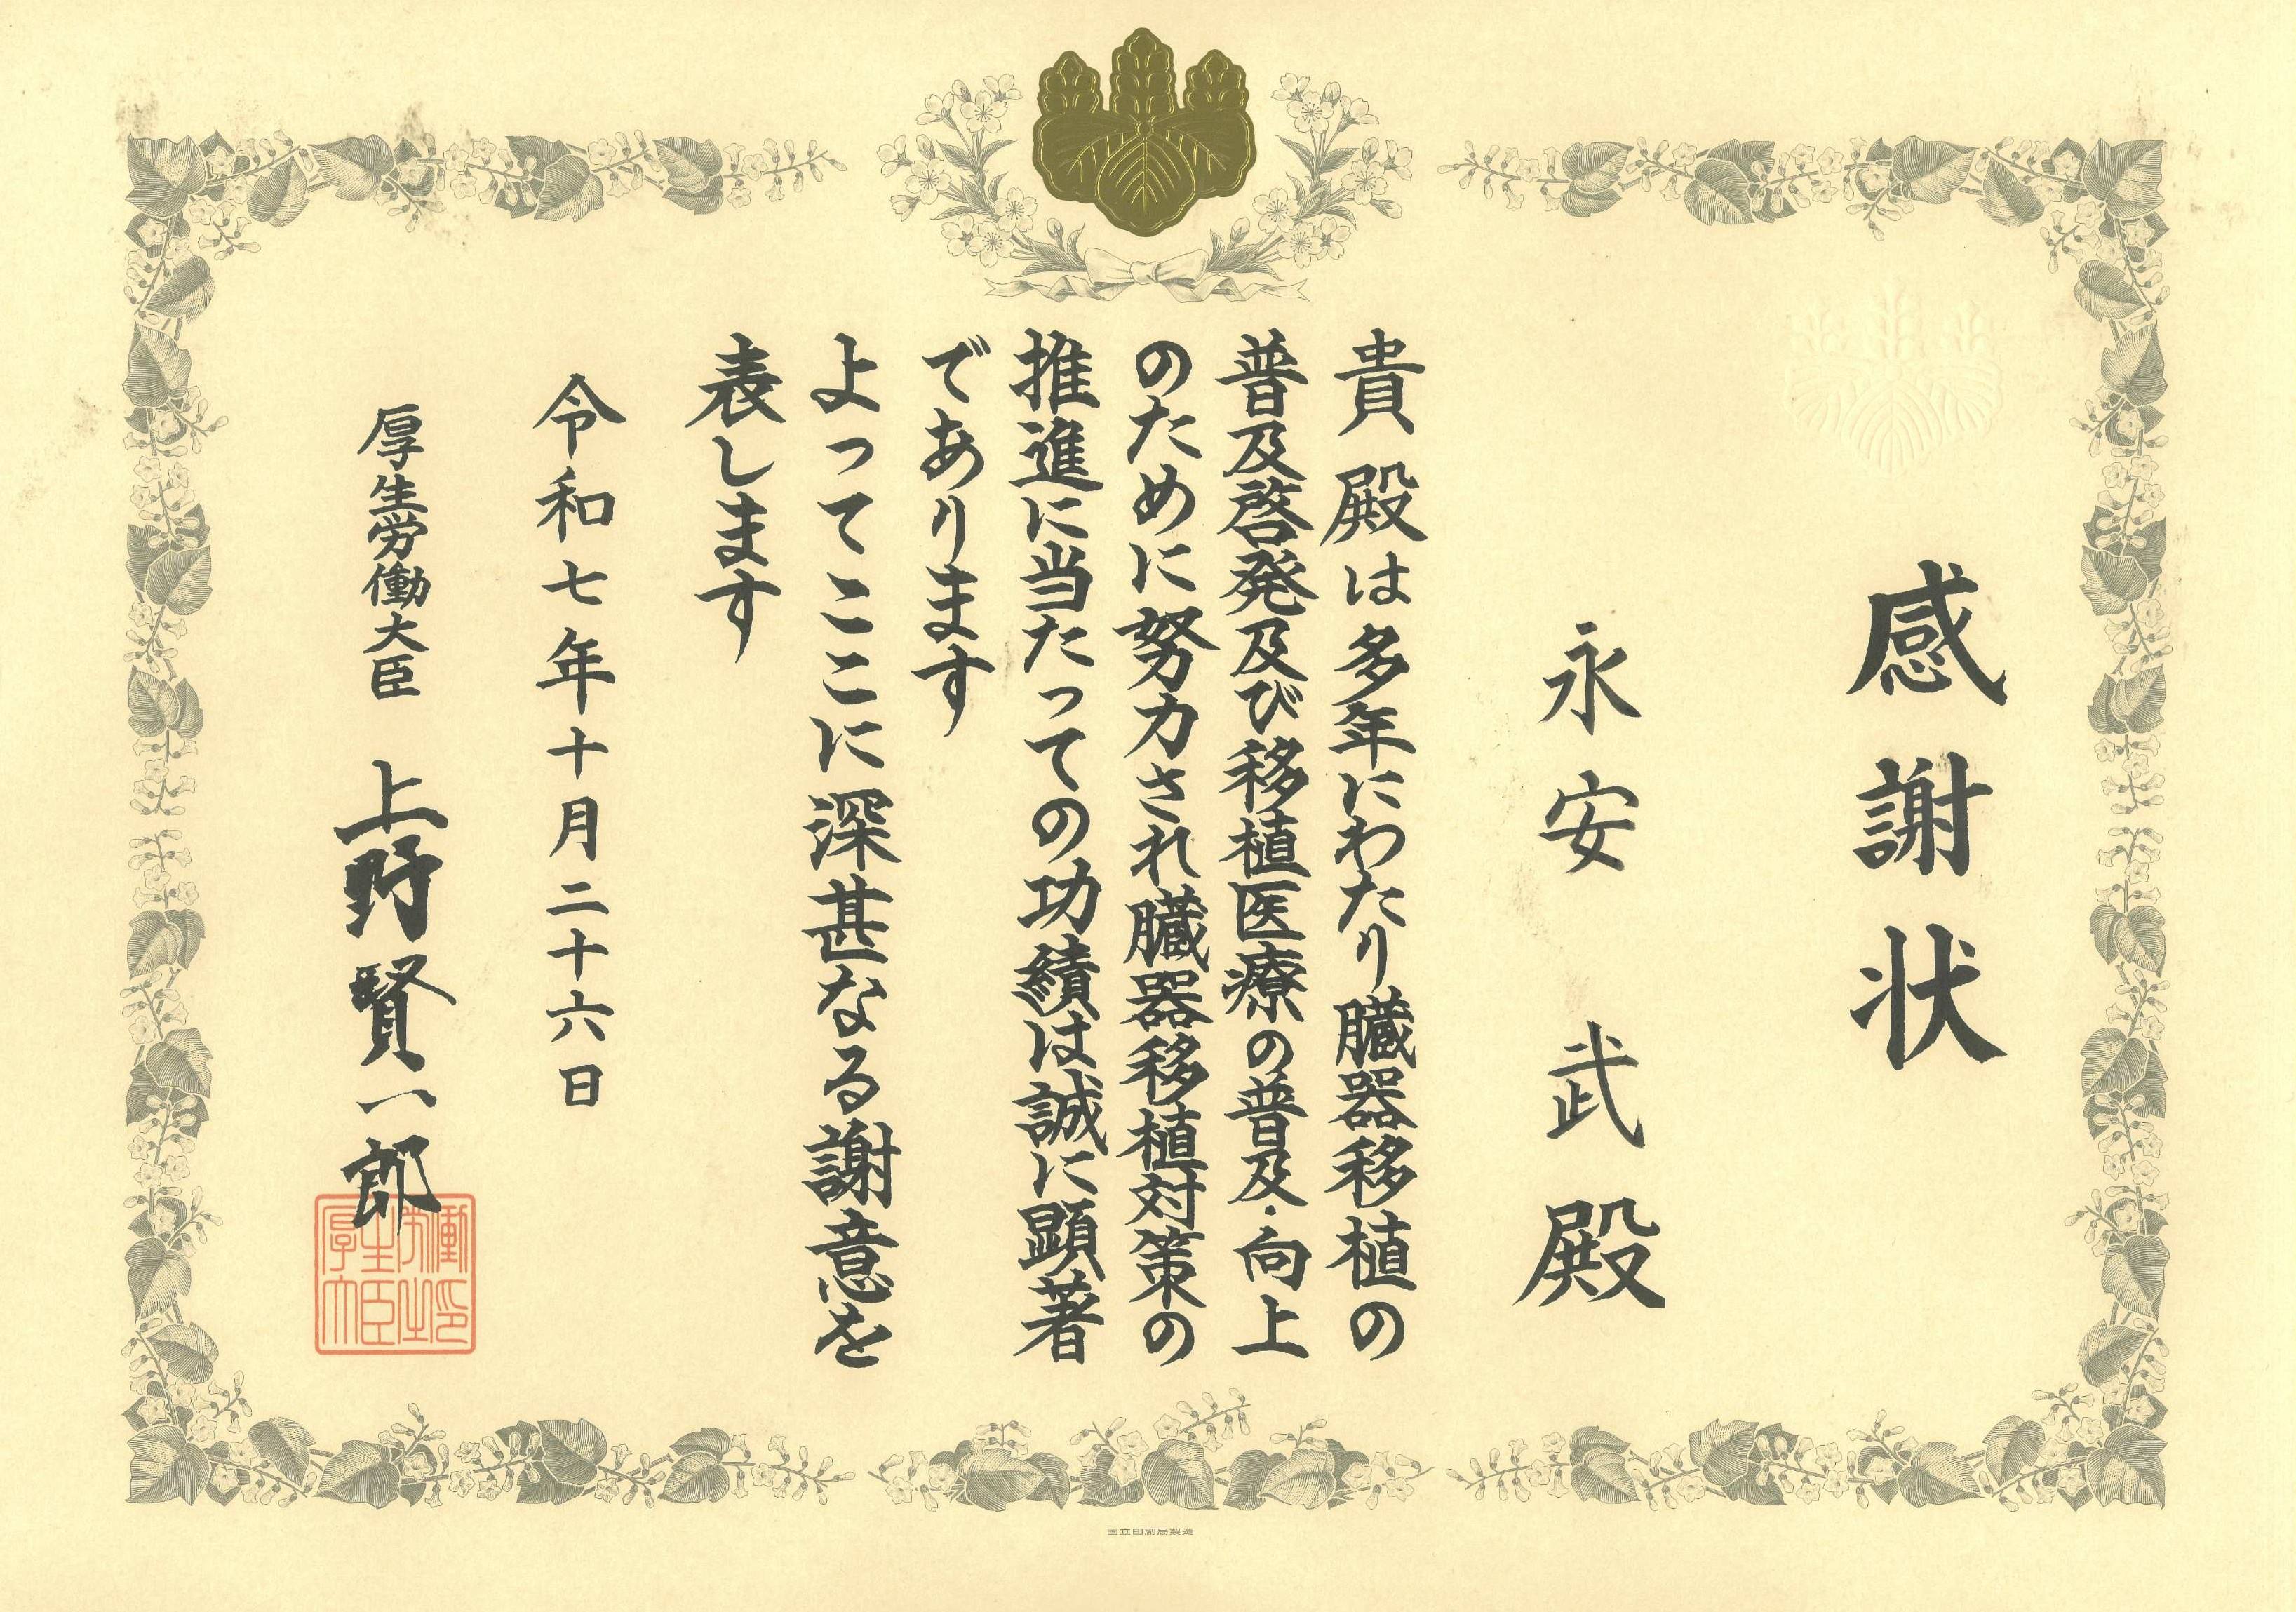 感謝状
永安 武 殿
貴殿は多年にわたり臓器移植の
普及啓発及び移植医療の普及・向上
のために努力され臓器移植対策の
推進に当たっての功績は誠に顕著
であります
よってここに深甚なる謝意を
表します
令和七年十月二十六日
厚生労働大臣 上野賢一郎
国立印刷局製造